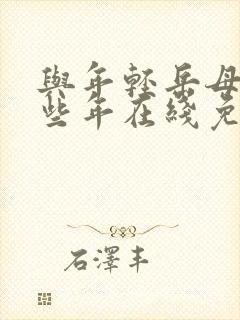 與年輕岳母
些年在綫免
石澤丰